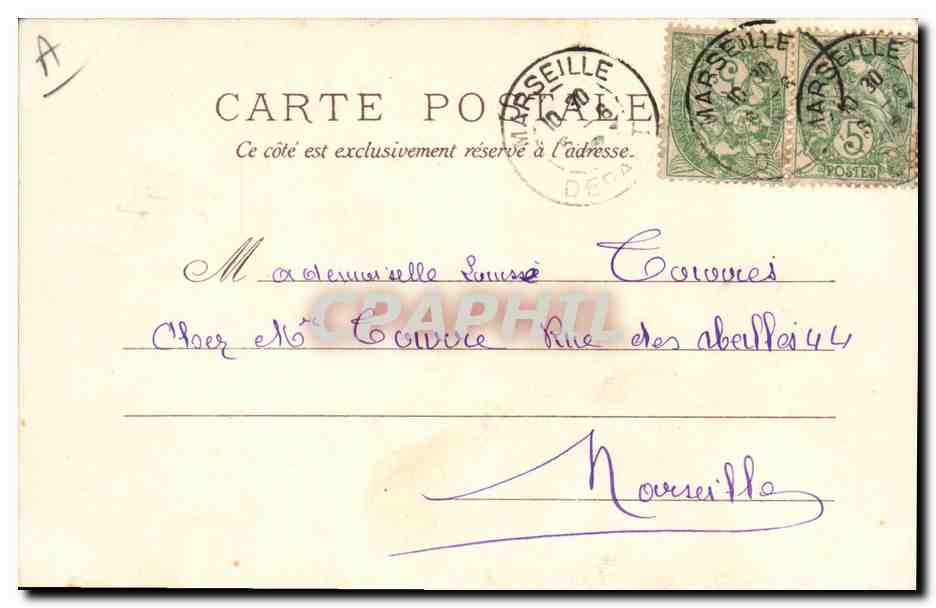 A
CARTE POSTALE
Ce côté est exclusivement réservé à l'adresse.
MARSEILLE
10 30
DEPART
MARSEILLE
10 30
MARSEILLE
10 30
5
POSTES
Mademoiselle Louise
Chez Mr Rue des abeilles 44
Marseille
CPAPHIL